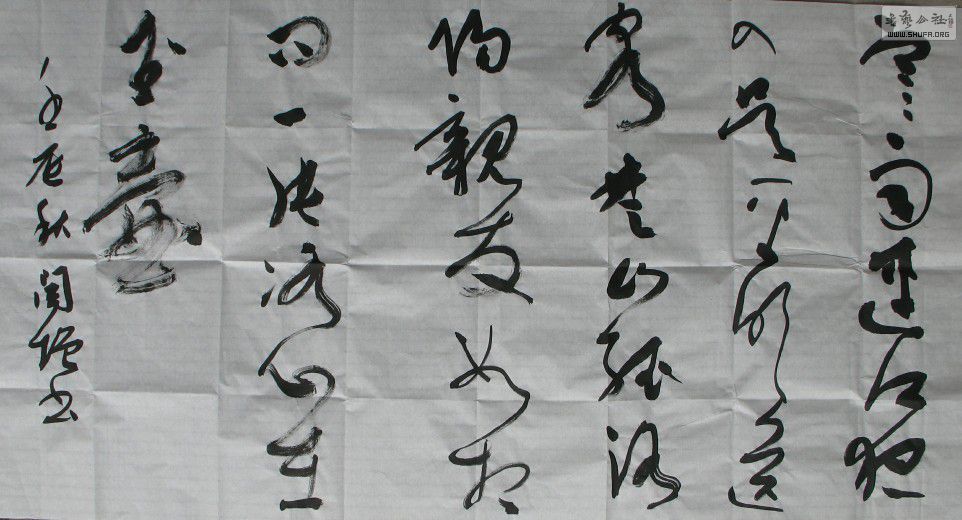 书艺公社
WWW.SHUFA.ORG
寒雨連江夜
入吳平明送
客楚山孤洛
陽親友如相
问一片冰心在
玉壺
壬辰秋書